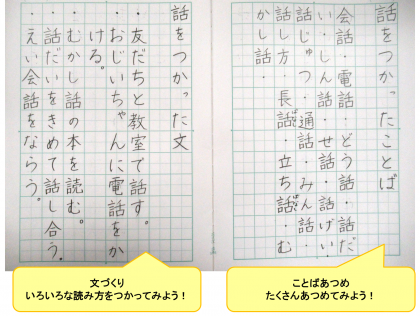 話をつかったことば
会話・電話・どう話・話だ
い・しん話・せ話・話げい・
話じゅつ・通話・みん話・
話し方・長話・立ち話・む
かし話
話をつかった文
・友だちと教室で話す。
・おじいちゃんに電話をか
ける。
・むかし話の本を読む。
・話だいをきめて話し合う。
・えい会話をならう。
文づくり
いろいろな読み方をつかってみよう！
ことばあつめ
たくさんあつめてみよう！